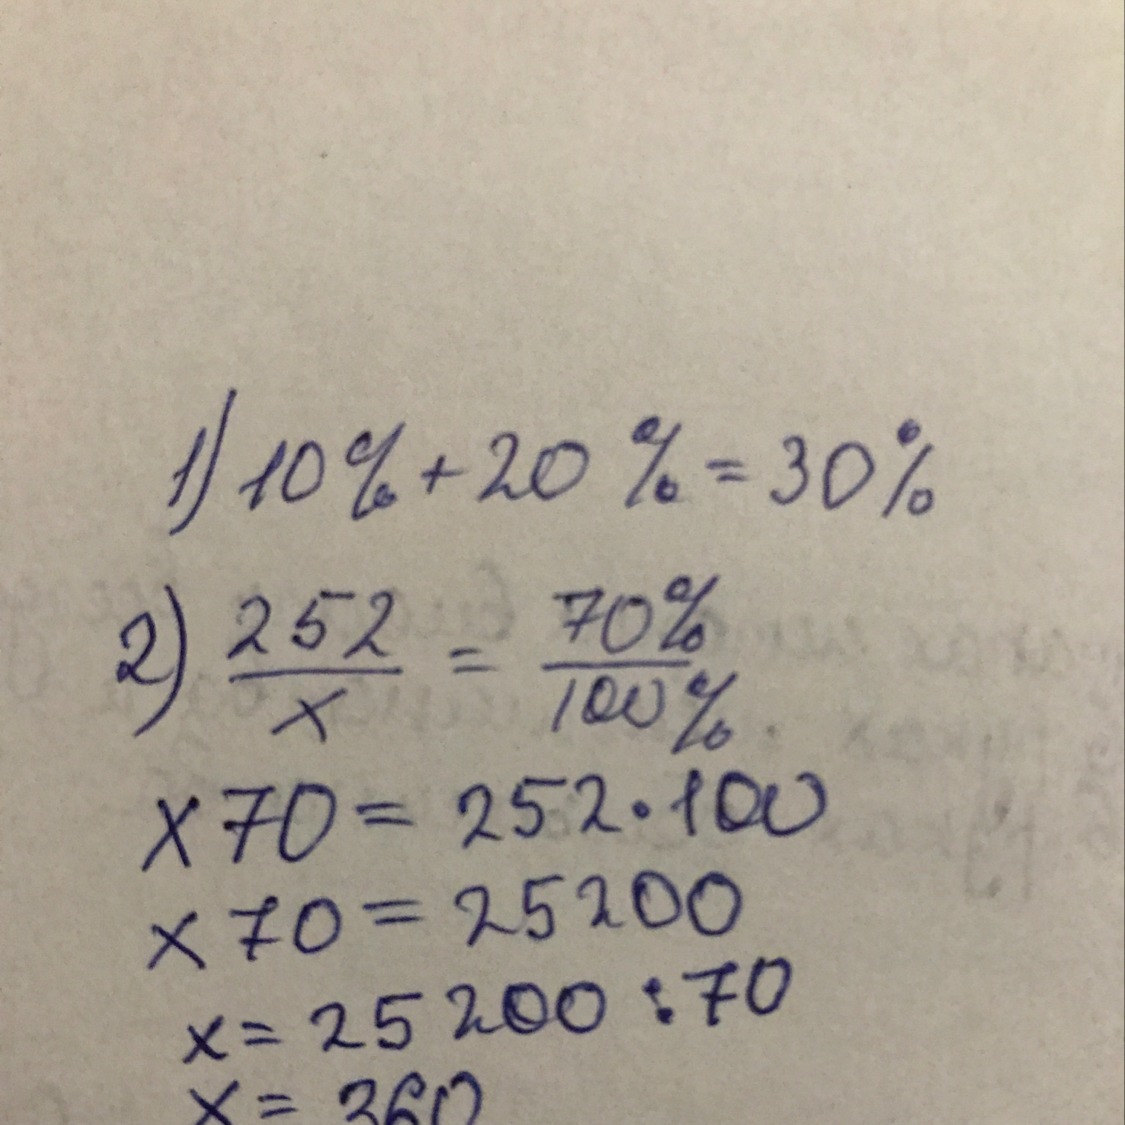 1) 10% + 20% = 30%
2) 252/x = 70%/100%
x 70 = 252 · 100
x 70 = 25200
x = 25200 : 70
x = 360